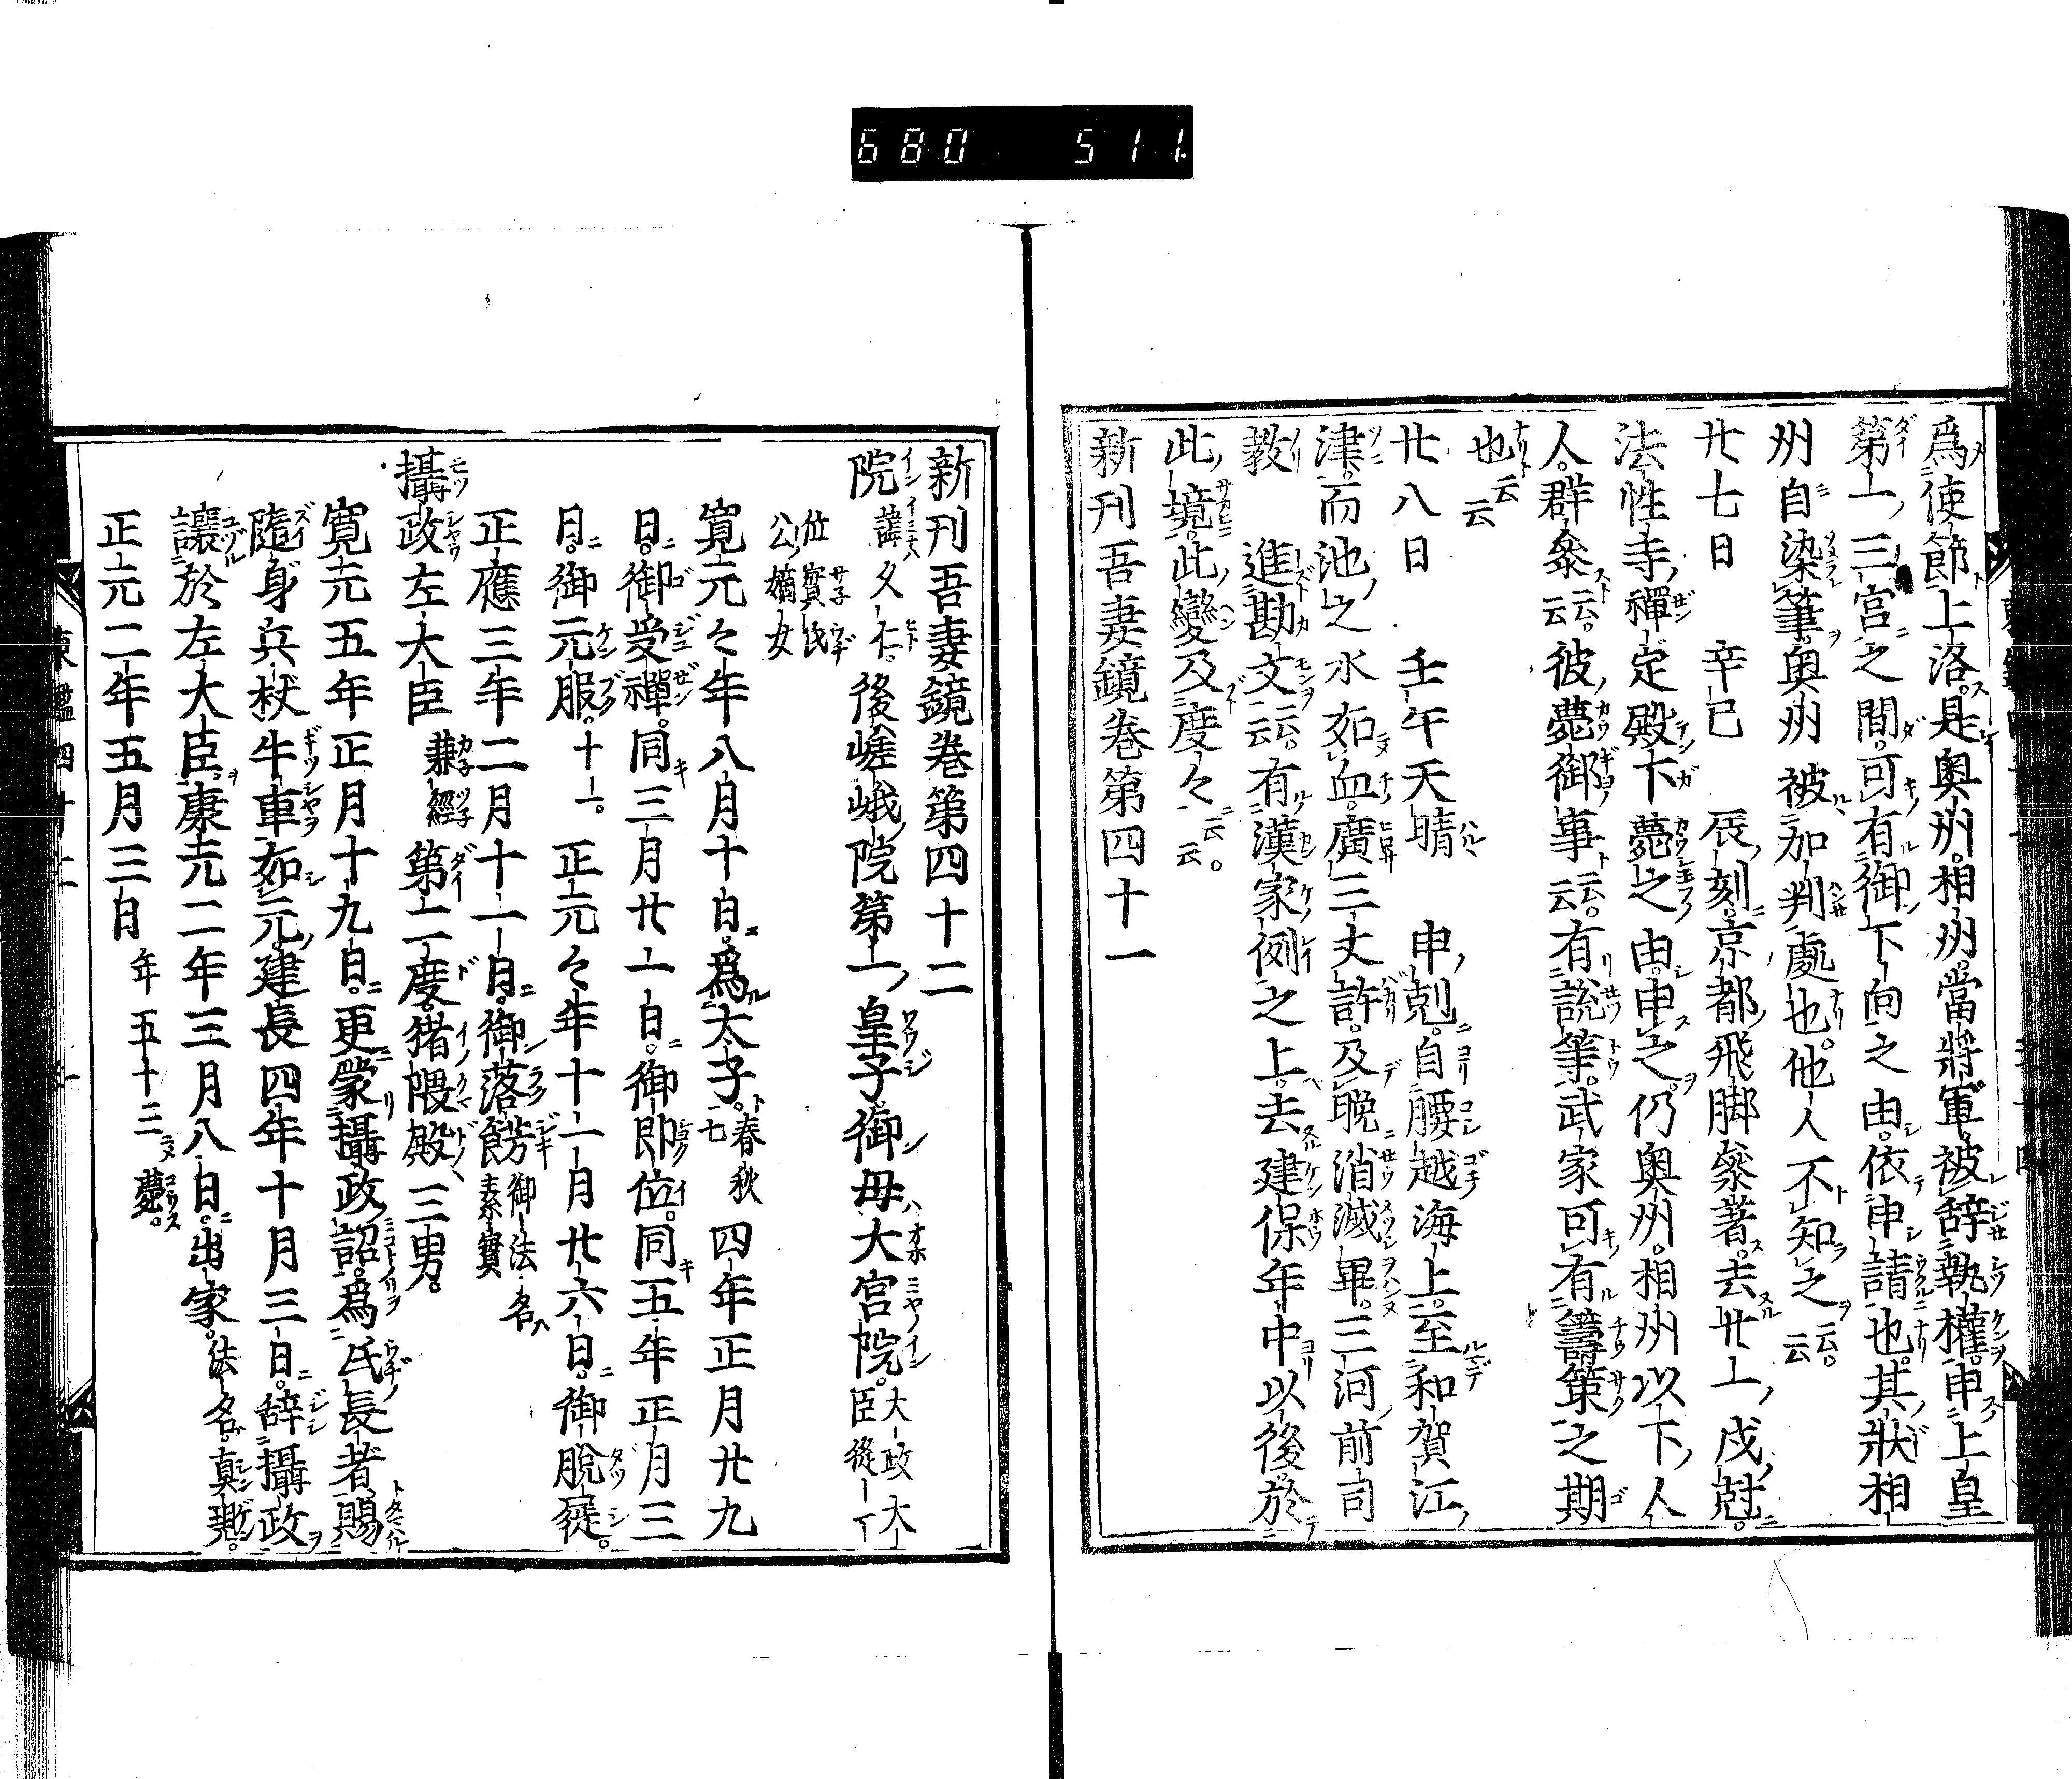 680 511.
爲使節上洛是奥州相州當將軍被辭執權申上皇
第一三宮之間可有御下向之由依申請也其狀相
州自染筆奥州被加判處也他人不知之云云
廿七日 辛巳 辰刻京都飛脚參著去廿一戌尅
法性寺禪定殿下薨之由申之仍奥州相州以下人
人群參云云彼薨御事云云有説等武家可有籌策之期
也云云
廿八日 壬午天晴 申尅自腰越海上至和賀江
津而池之水如血廣三丈許及晩消滅畢三河前司
敎 進勘文云云有漢家例之上去建保年中以後於
此境此變及度々云云
新刊吾妻鏡巻第四十一
新刊吾妻鏡巻第四十二
院 諱久仁後嵯峨院第一皇子御母大宮院 大政大臣從一
位實氏公嫡女
寛元々年八月十日爲太子春秋一七四年正月廿九
日御受禪同三月廿一日御即位同五年正月三
日御元服十一正元々年十一月廿六日御脱屣
正應三年二月十一日御落餝 御法名素實
攝政左大臣 兼經 第二度猪隈殿三男
寛元五年正月十九日更蒙攝政詔爲氏長者賜
隨身兵杖牛車如元建長四年十月三日辞攝政
讓於左大臣康元二年三月八日出家法名真
正元二年五月三日 年五十三薨